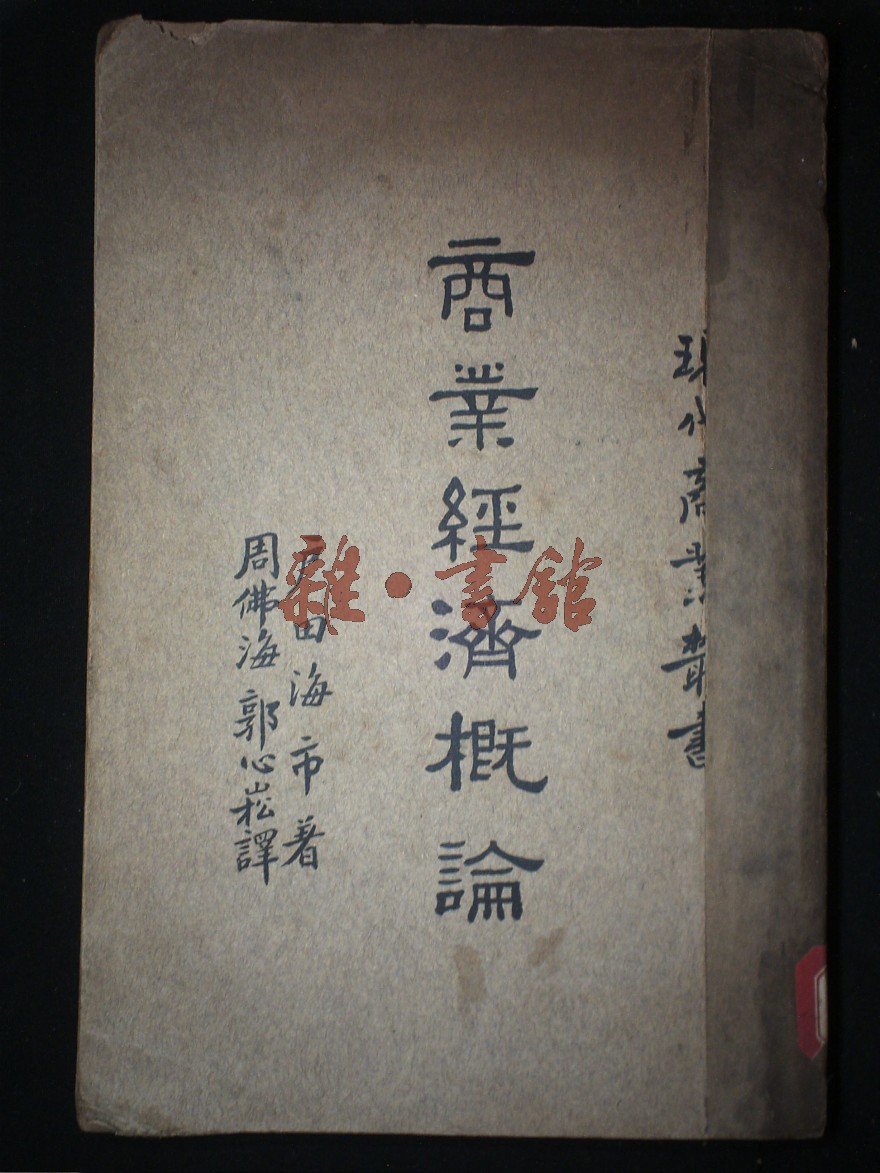 現代商業叢書
商業經濟概論
田海市著
周佛海 郭心崧譯
雜·書館